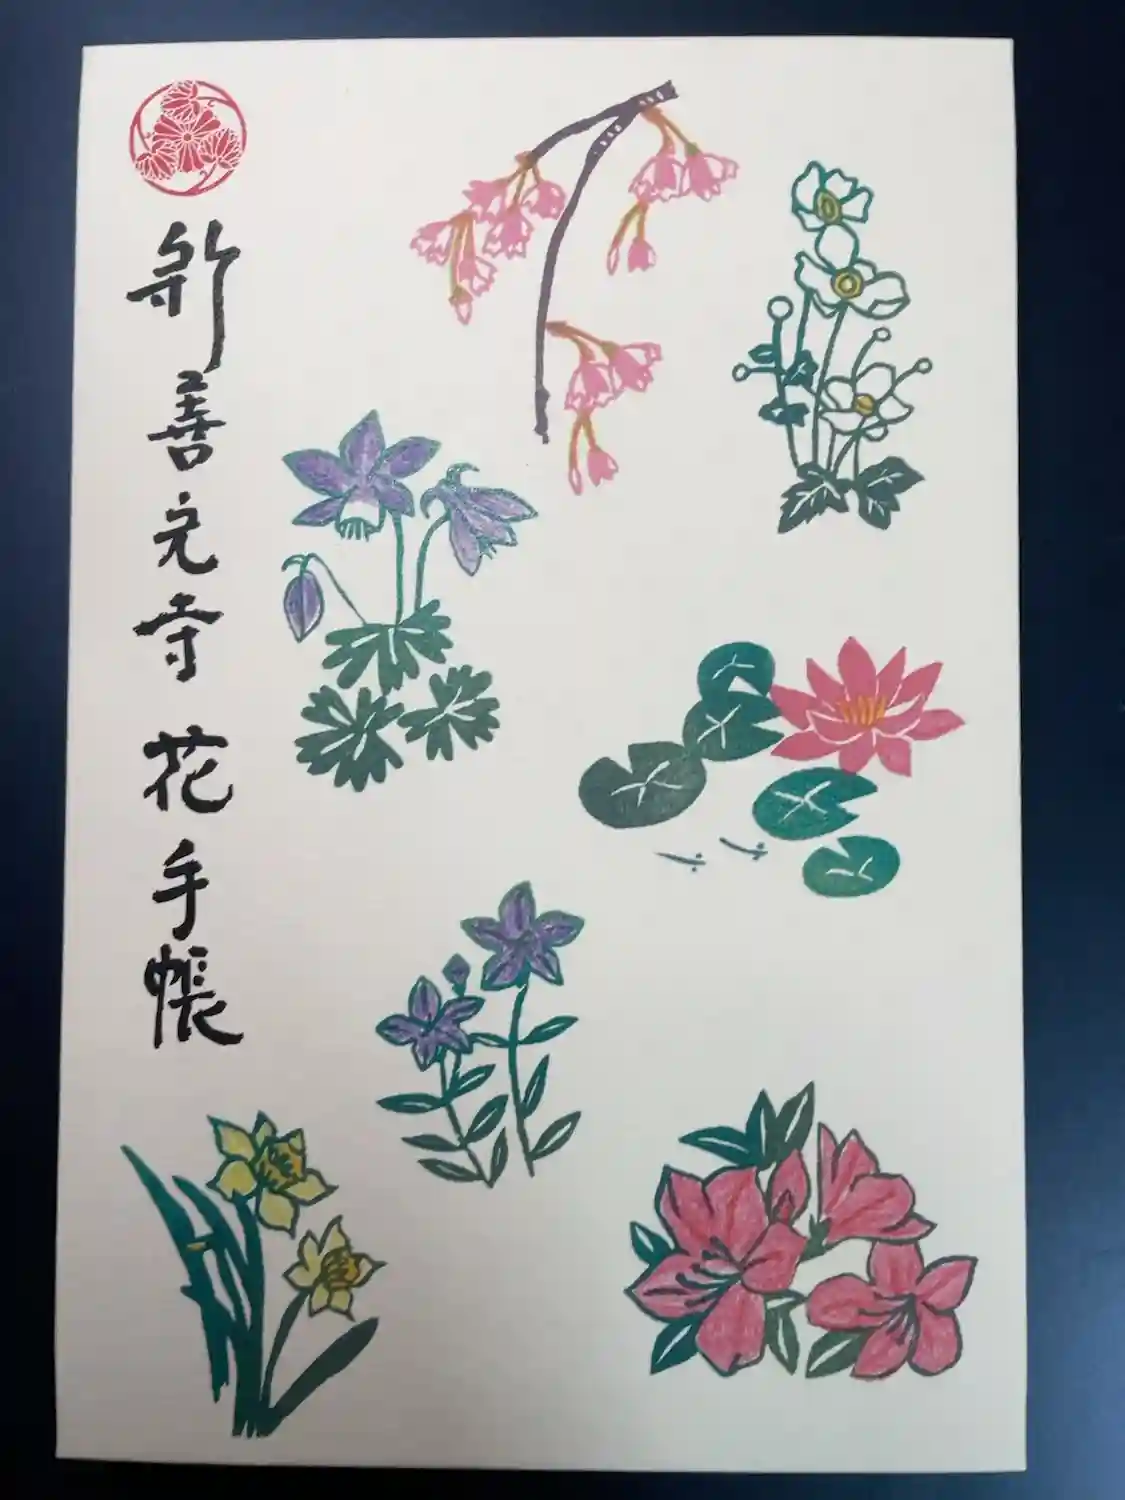 新善光寺 花手帳